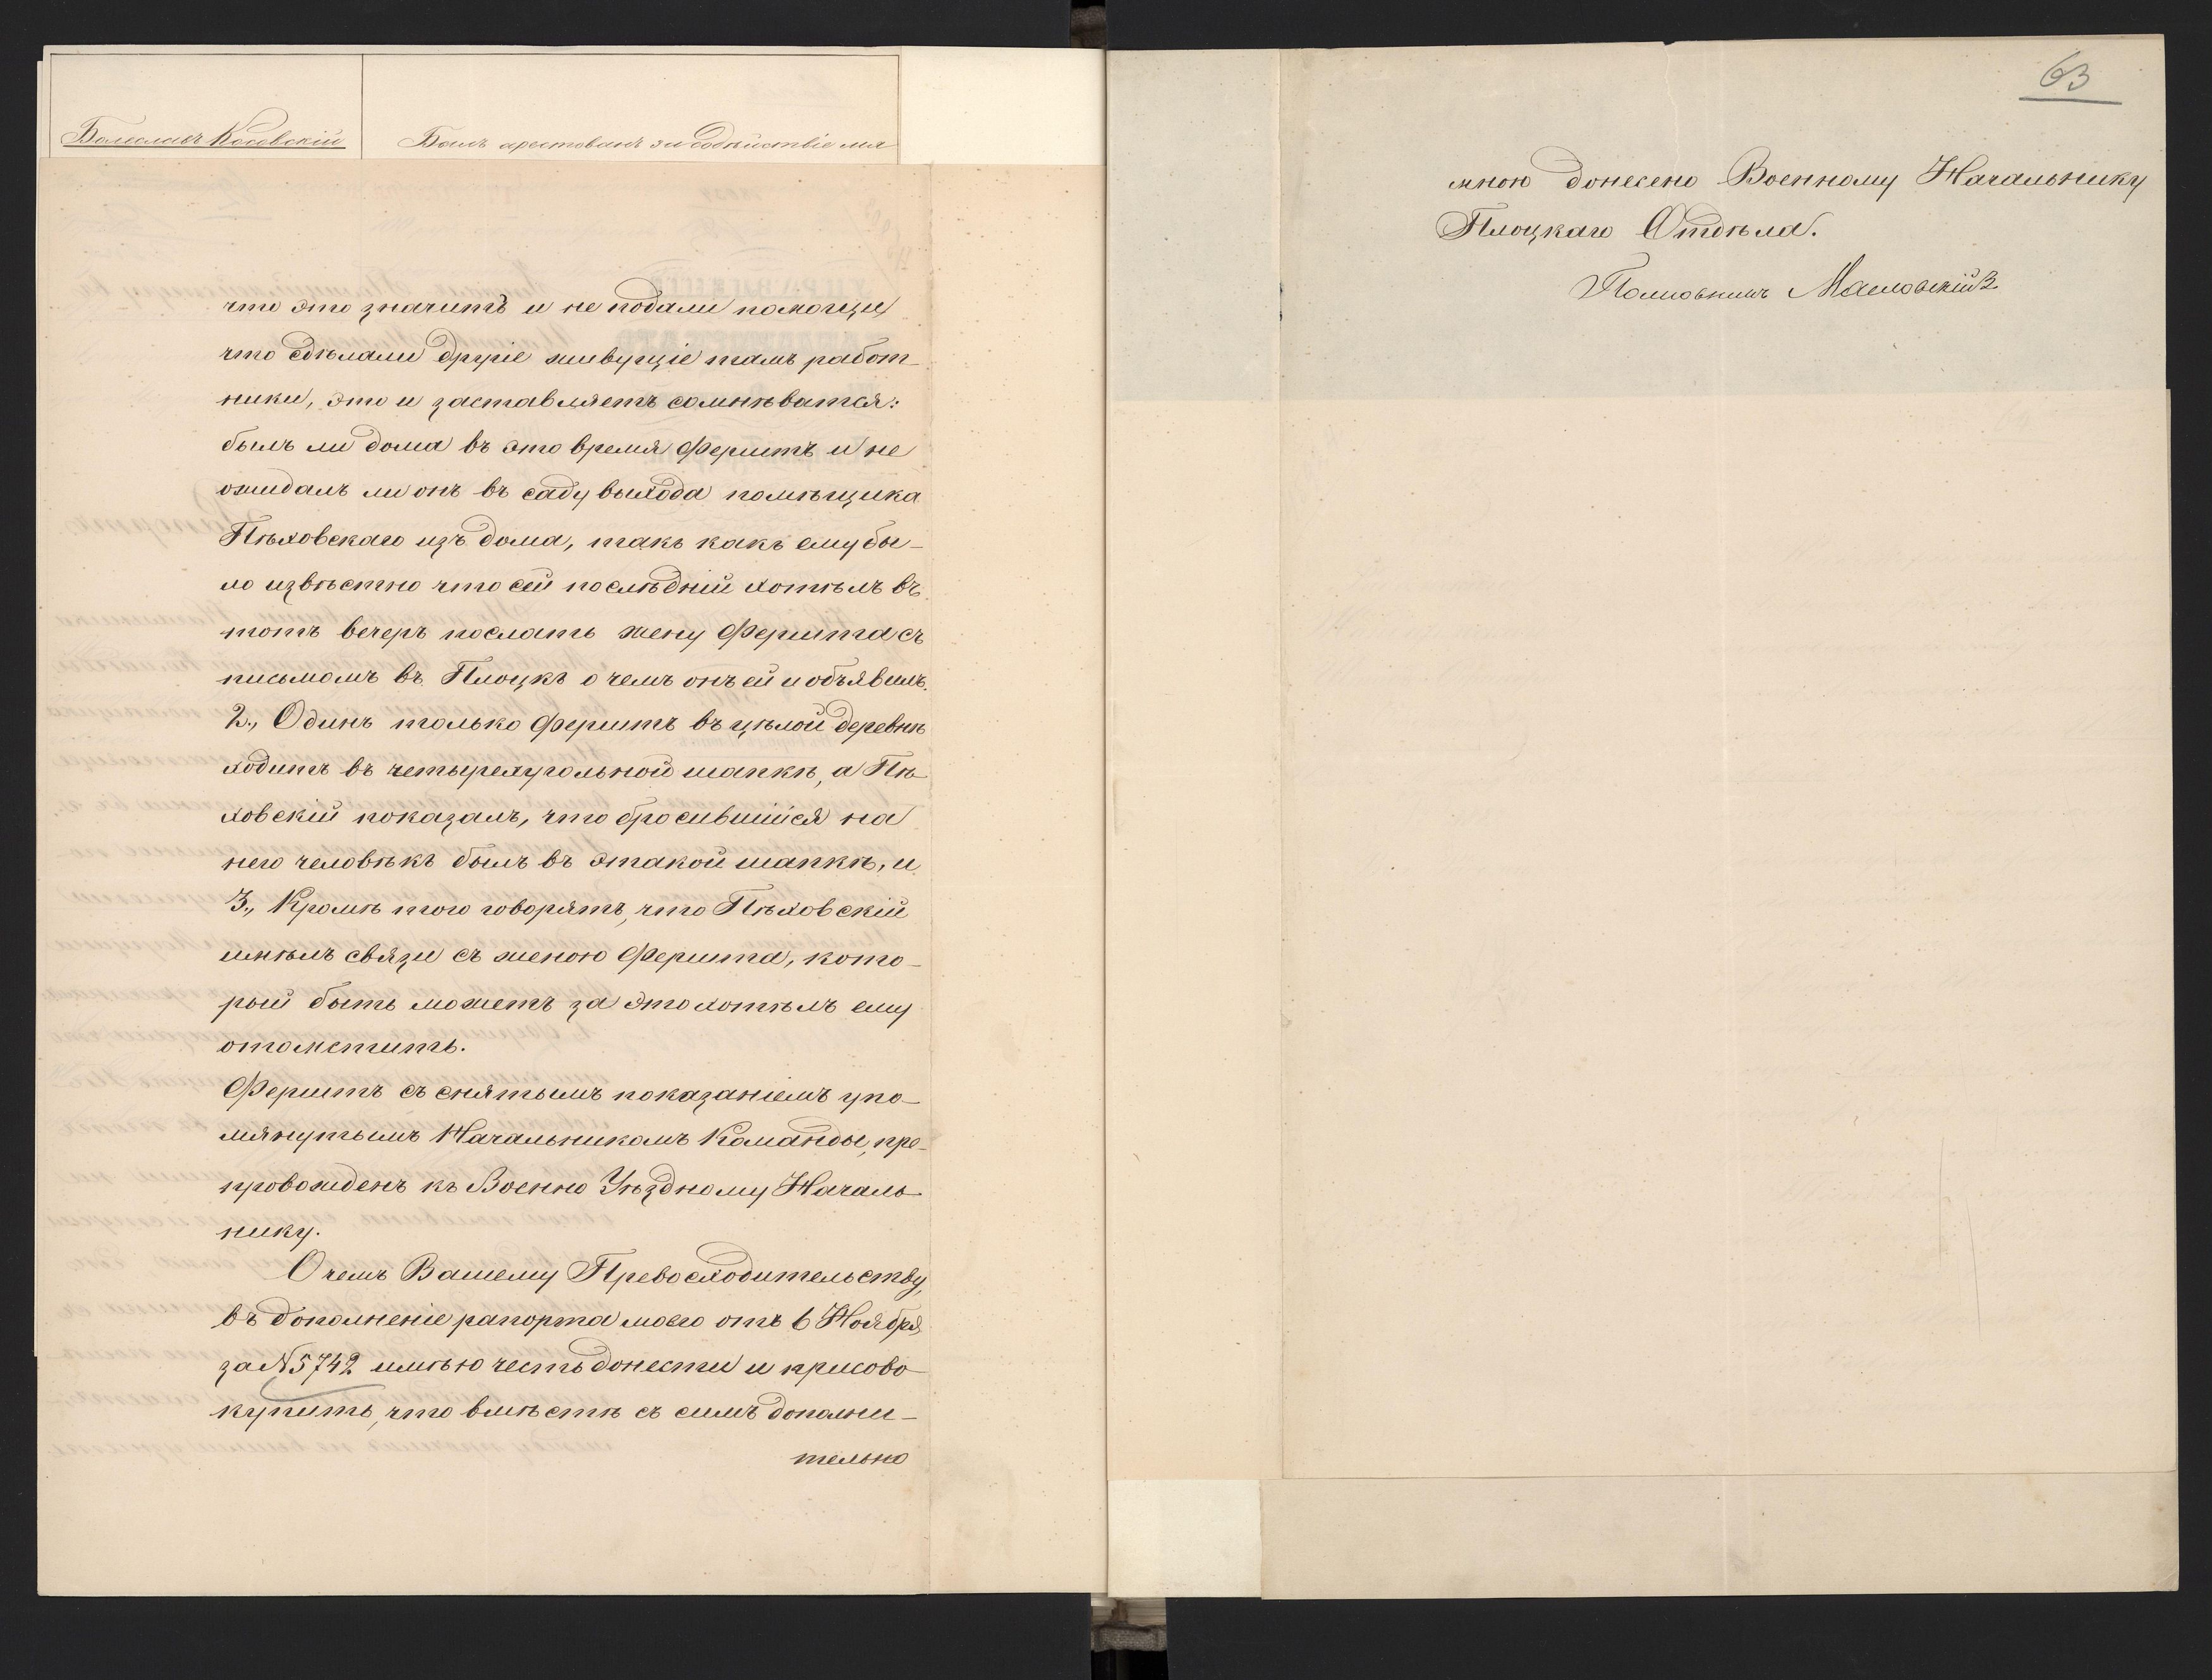 Болеславъ Косовскій
Былъ арестованъ за содѣйствіе мя
что это значитъ и не подали помощи
что сдѣлали другіе живущіе тамъ работ-
ники, это и заставляетъ сомнѣватся:
былъ ли дома въ это время Ферштъ и не
ожидалъ ли онъ въ саду выхода помѣщика
Пѣховскаго изъ дома, такъ какъ ему бы-
ло извѣстно что сей послѣдній хотѣлъ въ
тотъ вечеръ послать жену Фершта съ
письмомъ въ Плоцкъ о чемъ онъ ей и объявилъ.
2., Одинъ только Ферштъ въ цѣлой деревнѣ
ходитъ въ четыреугольной шапкѣ, а Пѣ-
ховскій показалъ, что бросившійся на
него человѣкъ былъ въ этакой шапкѣ, и
3., Кромѣ того говорятъ, что Пѣховскій
имѣлъ связи съ женою Фершта, кото-
рый быть можетъ за это хотѣлъ ему
отомстить.
Ферштъ съ снятымъ показаніемъ упо-
мянутымъ Начальникомъ Команды, пре-
провожденъ къ Военно Уѣздному Началь-
нику.
О чемъ Вашему Превосходительству,
въ дополненіе рапорта моего отъ 6 Ноября
за №5742 имѣю честь донести и присово-
купить, что вмѣстѣ съ симъ дополни-
тельно
63
мною донесено Военному Начальнику
Плоцкаго Отдѣла.
Полковникъ Масловскій 2